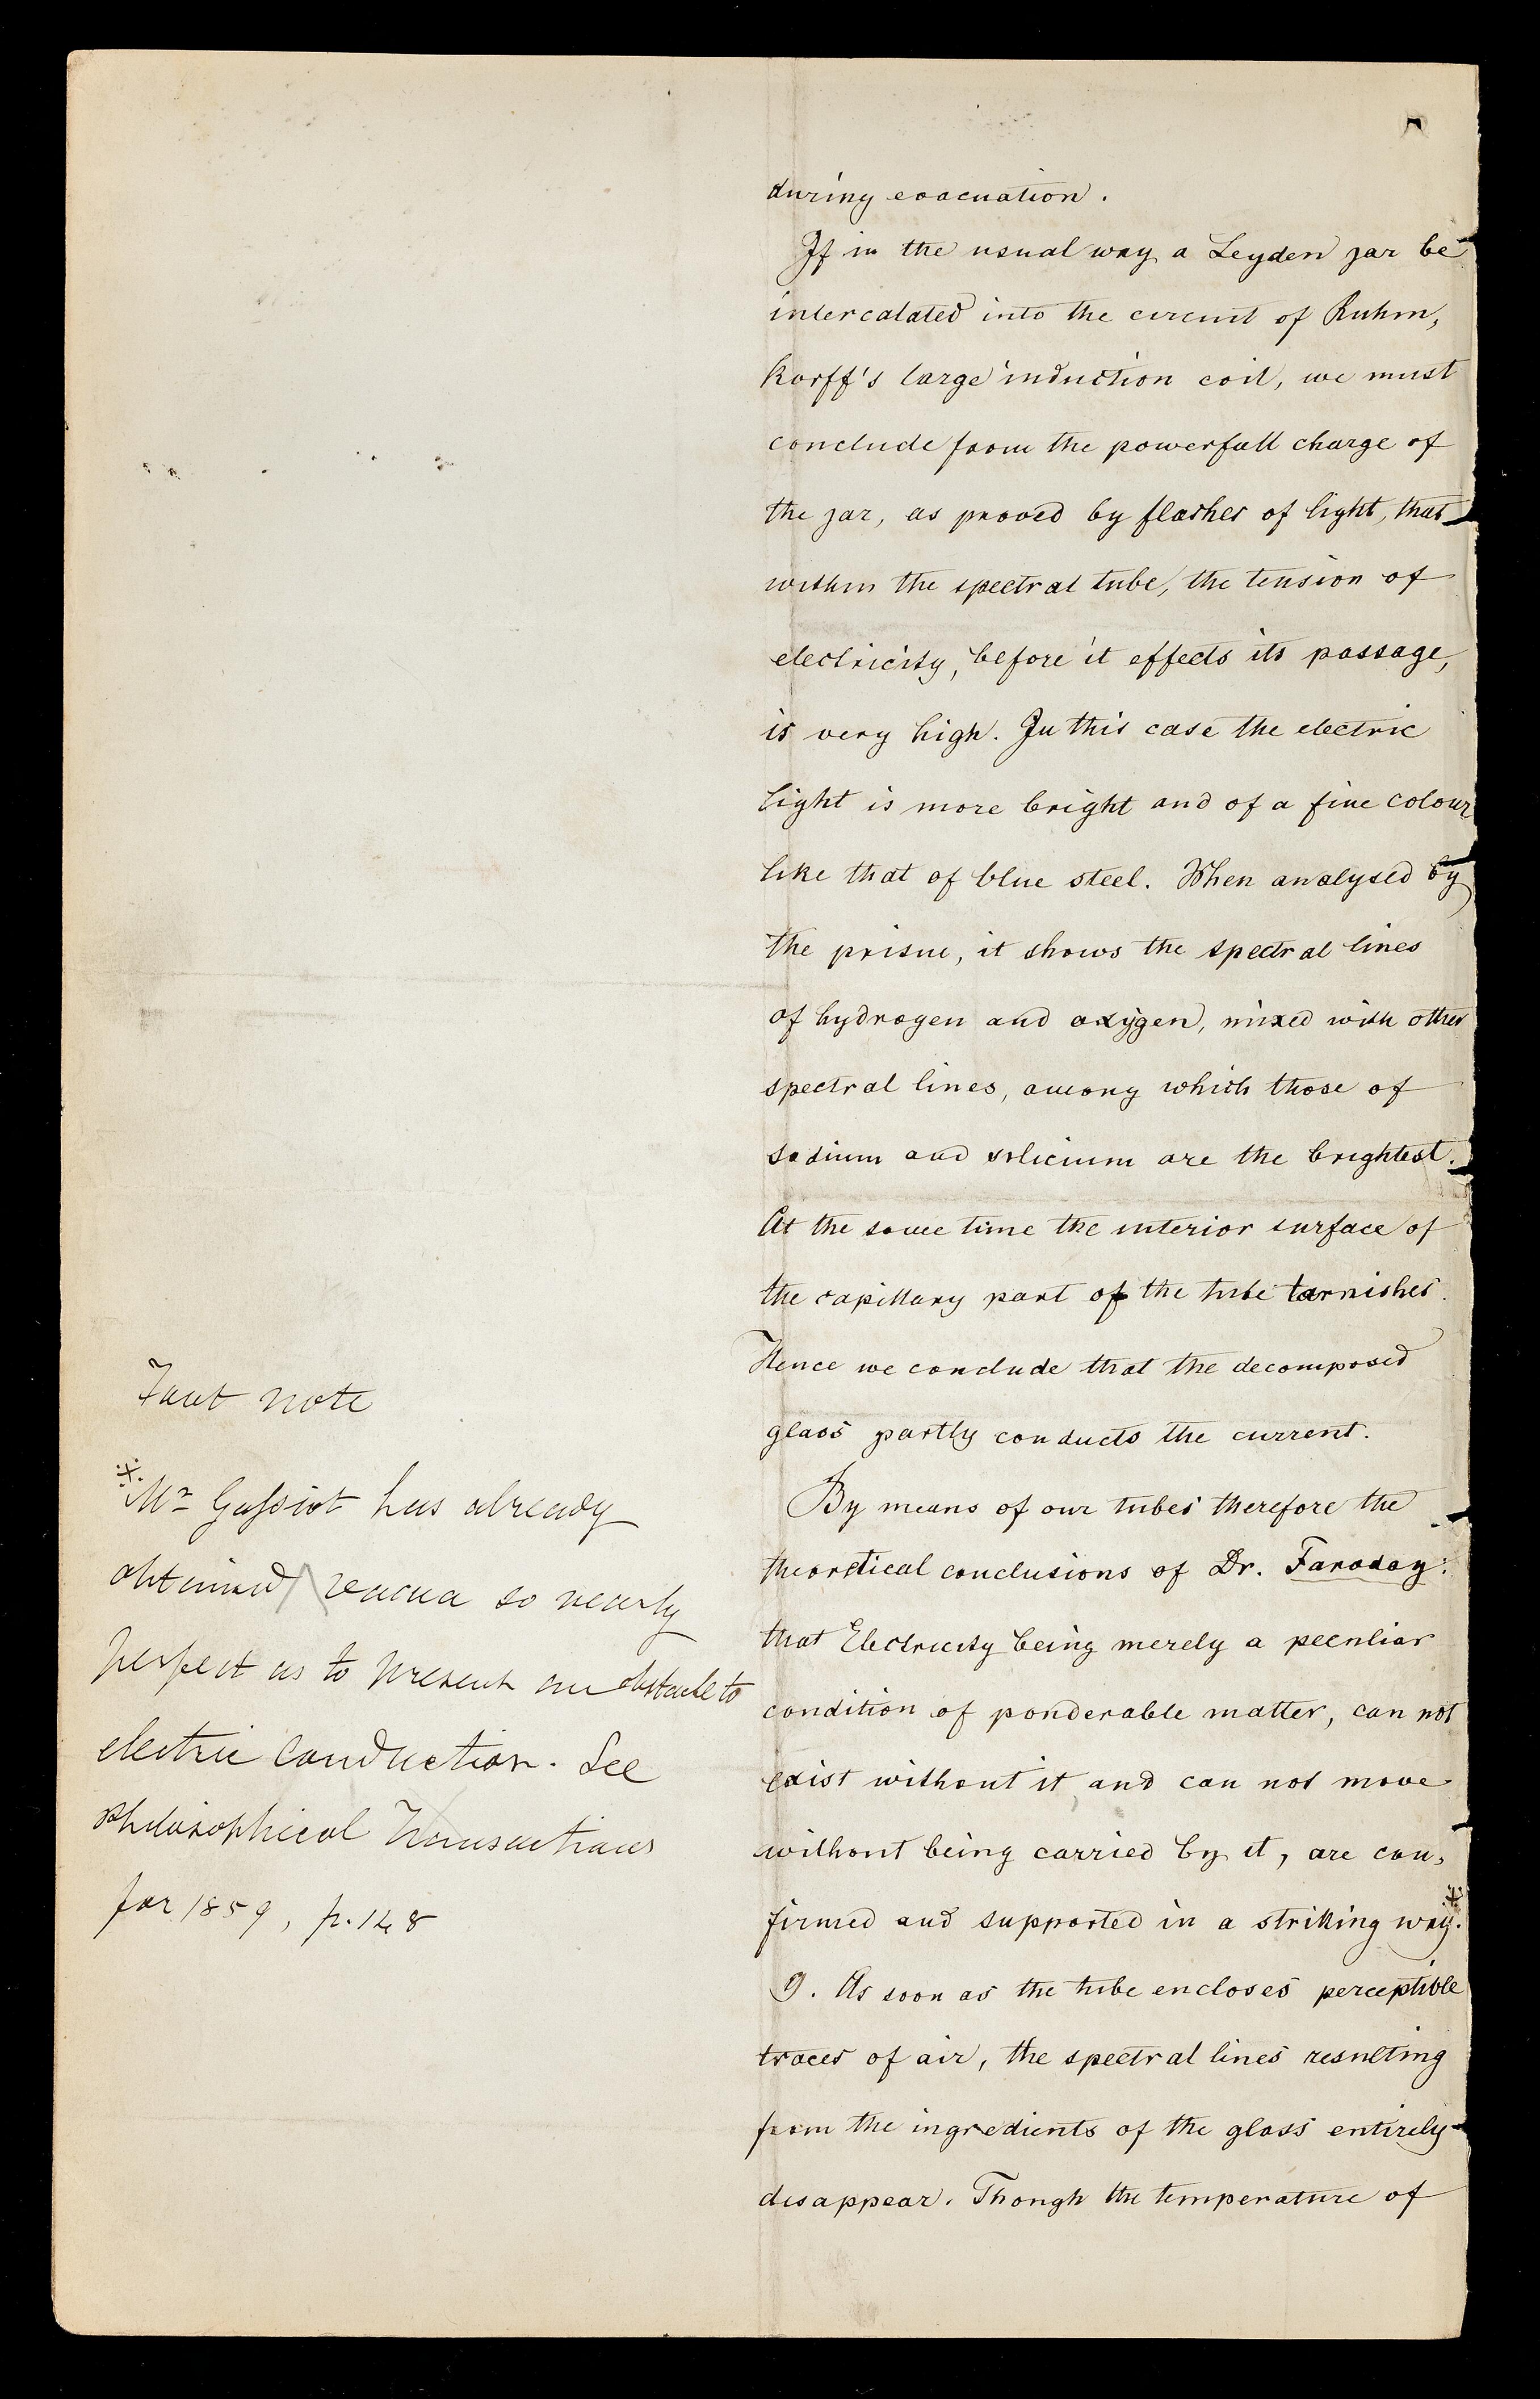 during evacuation.
If in the usual way a Leyden jar be
intercalated into the circuit of Ruhm,
korff's large induction coil, we must
conclude from the powerfull charge of
the jar, as proved by flashes of light, that
within the spectral tube, the tension of
electricity, before it effects its passage,
is very high. In this case the electric
light is more bright and of a fine colour
like that of blue steel. When analysed by
the prisme, it shows the spectral lines
of hydrogen and oxygen, mixed with other
spectral lines, among which those of
sodium and silicium are the brightest.
At the same time the interior surface of
the capillary part of the tube tarnishes.
Hence we conclude that the decomposed
glass partly conducts the current.
By means of our tubes therefore the
theoretical conclusions of Dr. Faraday:
that Electricity being merely a peculiar
condition of ponderable matter, can not
exist without it, and can not move
without being carried by it, are con,
firmed and supported in a striking way.*
9. As soon as the tube encloses perceptible
traces of air, the spectral lines resulting
from the ingredients of the glass entirely
disappear. Though the temperature of
Foot note
* Mr Gassiot has already
obtained vacua so nearly
perfect as to present an obstacle to
electric conduction. See
Philosophical Transactions
for 1859, p. 148